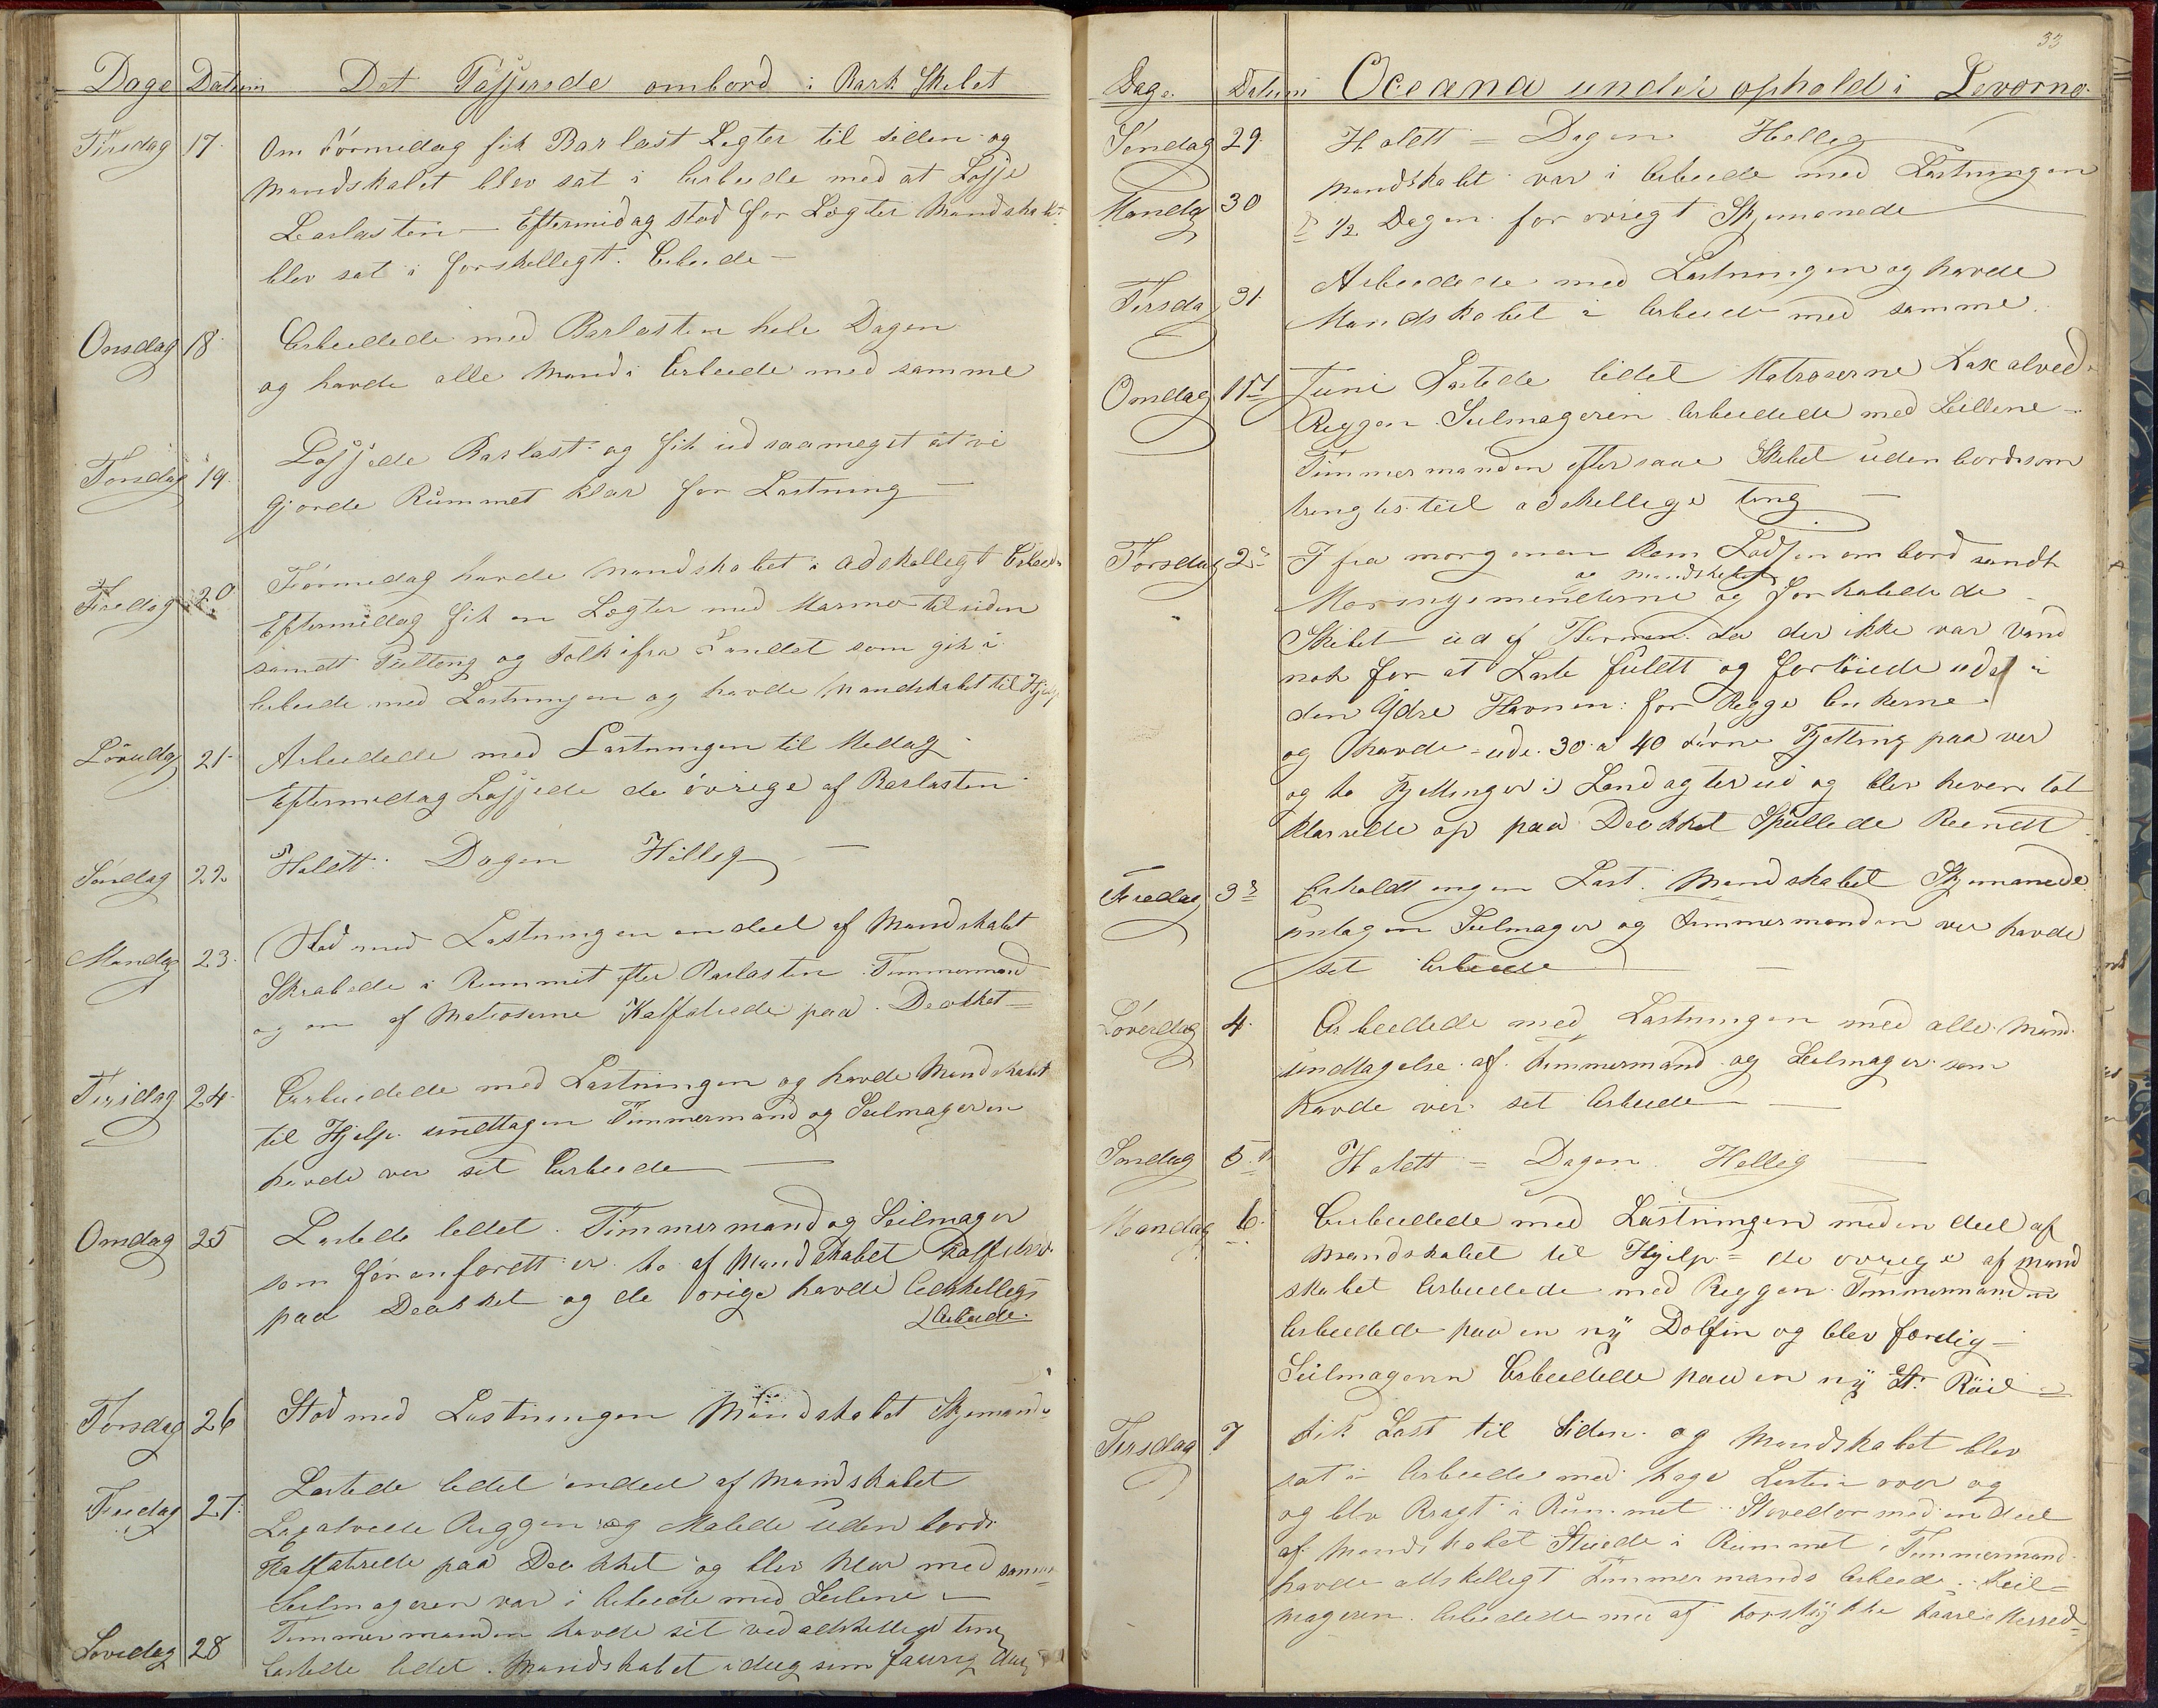 Dage Datum Det Passerede ombord i Bark Skibet
Tirsdag 17. Om Formidag fik Barlast Legter til siden og
Mandskabet blev sat i Arbeide med at Losse
Barlasten – Eftermidag stod for Legter Mandskabt
blev sat i forskellegt. Arbeide –
Onsdag 18. Arbeidede med Barlasten hele Dagen
og havde alle Mand i Arbeide med samme
Torsdag 19. Lossede Barlast og fik ud saameget at vi
gjorde Rummet klar for Lastning –
Fredag 20. Formedag havde Mandskabet i adskellegt Arbeide
Eftermidag fik en Legter med Marmor til siden
samdt og Folk ifra Landet som gik i
Arbeide med Lastningen og havde Mandskabet til Hjelp
Lörsdag 21. Arbeidede med Lastningen til Medag
Eftermedag Lossede de övrige af Barlasten
Söndag 22. Holdt Dagen Hellig –
Mandag 23. Stod med Lastningen en deel af Mandskabet
Skrabede i Rummet efter Barlasten Timmermand
og en af Matroserne Kalfatrede paa Deækket –
Tirsdag 24. Arbeidede med Lastningen og havde Mandskabet
til Hjelp undtagen Timmermand og Seilmageren
havde ver sit Arbeide –
Onsdag 25 Lastede ledet. Timmermand og Seilmager
som för anforett er. to af Mandskabet Kalfatrede
paa Deækket og de övrige havde Adskelligt
Arbeide.
Torsdag 26 Stod med Lastningen Mandskabet Skjemande
Fredag 27. Lastede ledet endeel af Mandskabet
Laxalvede Riggen og Malede uden bords
Kalfatrede paa Deækket og blev klar med samme
Seilmageren var i Arbeide med Seilene –
Timmermanden havde sit ved adskellige ting
Lovedag 28 Lastede ledet. Mandskabet idag som faarig dag
33
Dage. Datum Oceana under ophold i Levorno.
Söndag 29. Holdt = Dagen Hellig
Mandag 30 Mandskabet var i Arbeide med Lastningen
1/2 Dagen for övrigt Skjemanede
Tirsdag 31. Arbeidede med Lastningen og havde
Mandskabet i Arbeide med samme.
Onsdag 1st Juni Lastede ledet Matroserne Laxalvede
Riggen Seilmageren Arbeidede med Seilene –
Timmermanden eftersaae Skibet uden bords som
trengtes teil adskellige ting –
Torsdag 2 I fra morgenen kom Lodsen ombord samdt
og Mandskabet
og forhalede de
Skibet ud af Havnen da der ikke var Vand
nok for at Laste fuldt og fortöiede ude i
den Ydre Havnen: for Begge Ankerne
og havde ude 30 a 40 Favne Kjetting paa ver
og to Kjettinger i Land agter ud og blev heven tot
Klarede op paa Deækket Spullede Rendt
Fredag 3 Erholdt ingen Last. Mandskabet Skjemanede
untagen Seilmager og Timmermanden ver havde
sit Arbeide –
Löverdag 4. Arbeidede med Lastningen med alle Mand
undtagelse af Timmermand og Seilmager som
havde ver sit Arbeide –
Söndag 5. Holdt = Dagen Hellig
Mandag 6. Arbeidede med Lastningen med en deel af
Mandskabet til Hjelp = de övrige af Mand
skabet Arbeidede med Riggen Timmermanden
Arbeidede paa en ny Dolfin og blev færdig –
Seilmageren Arbeidede paa en ny St. Röil =
Tirsdag 7 Fik Last til Siden og Mandskabet blev
sat i Arbeide med tage Lasten over og
og blev Bragt i Rummet Stovedor med endeel
af Mandskabet Stuede i Rummet Timmermand
havde adskelligt Timmermands Arbeide Seil=
mageren Arbeidede med at